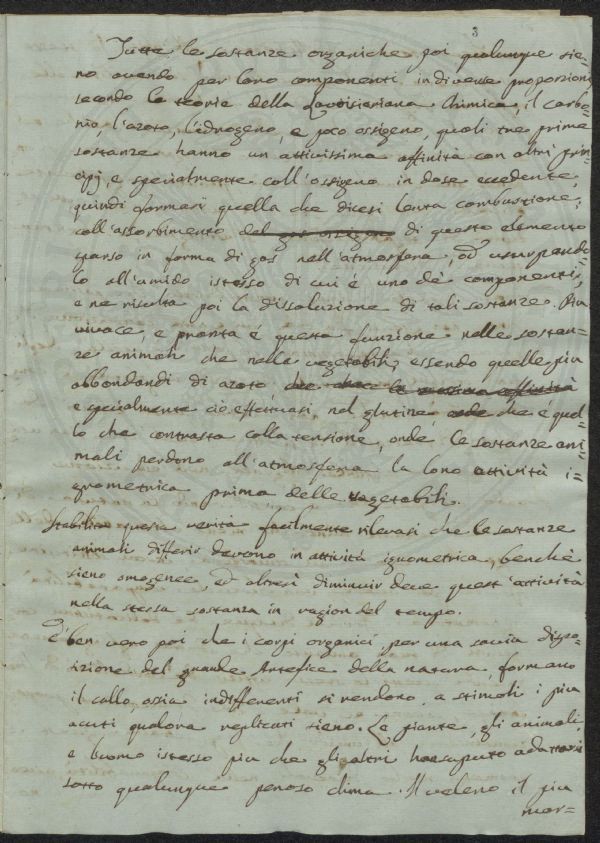 3
Tutte le sostanze organiche poi qualunque sie=
no avendo per loro componenti in diverse proporzioni
secondo le teorie della Lavoisieriana Chimica, il carbo=
nio, l'azoto, l'idrogeno, e poco ossigeno, quali tre prime
sostanze hanno un attivissima affinità con altri prin
cipj, e specialmente coll'ossigeno in dose eccedente,
quindi formasi quella che dicesi lenta combustione,
coll'assorbimento del gas ossigeno di questo elemento
sparso in forma di gas nell'atmosfera, ed usurpando
lo all'umido istesso di cui é uno de' componenti,
e ne risulta poi la dissoluzione di tali sostanze. Piu
vivace, e pronta é questa funzione nelle sostan=
ze animali che nella vegetabili, essendo quelle piu
abbondandi di azoto che la massima affinità
e specialmente ciò effettuasi nel glutine, che é quel=
lo che contrasta colla tensione, onde le sostanze ani
mali perdono all'atmosfera la loro attività i=
grometrica prima delle vegetabili.
Stabilita questa verità facilmente rilevasi che le sostanze
animali differir devono in attività igrometrica, benchè
sieno omogenee, ed altresì diminuir deve quest'attività
nella stessa sostanza in ragion del tempo.
É ben vero poi che i corpi organici per una savia dispo=
sizione del grande Artefice della natura, formano
il callo, ossia indifferenti si rendono a stimoli i piu
acuti qualora replicati sieno. Le piante, gli animali,
e l'uomo istesso piu che gli altri ha saputo adattarsi
sotto qualunque penoso clima. Il veleno il piu
mor=